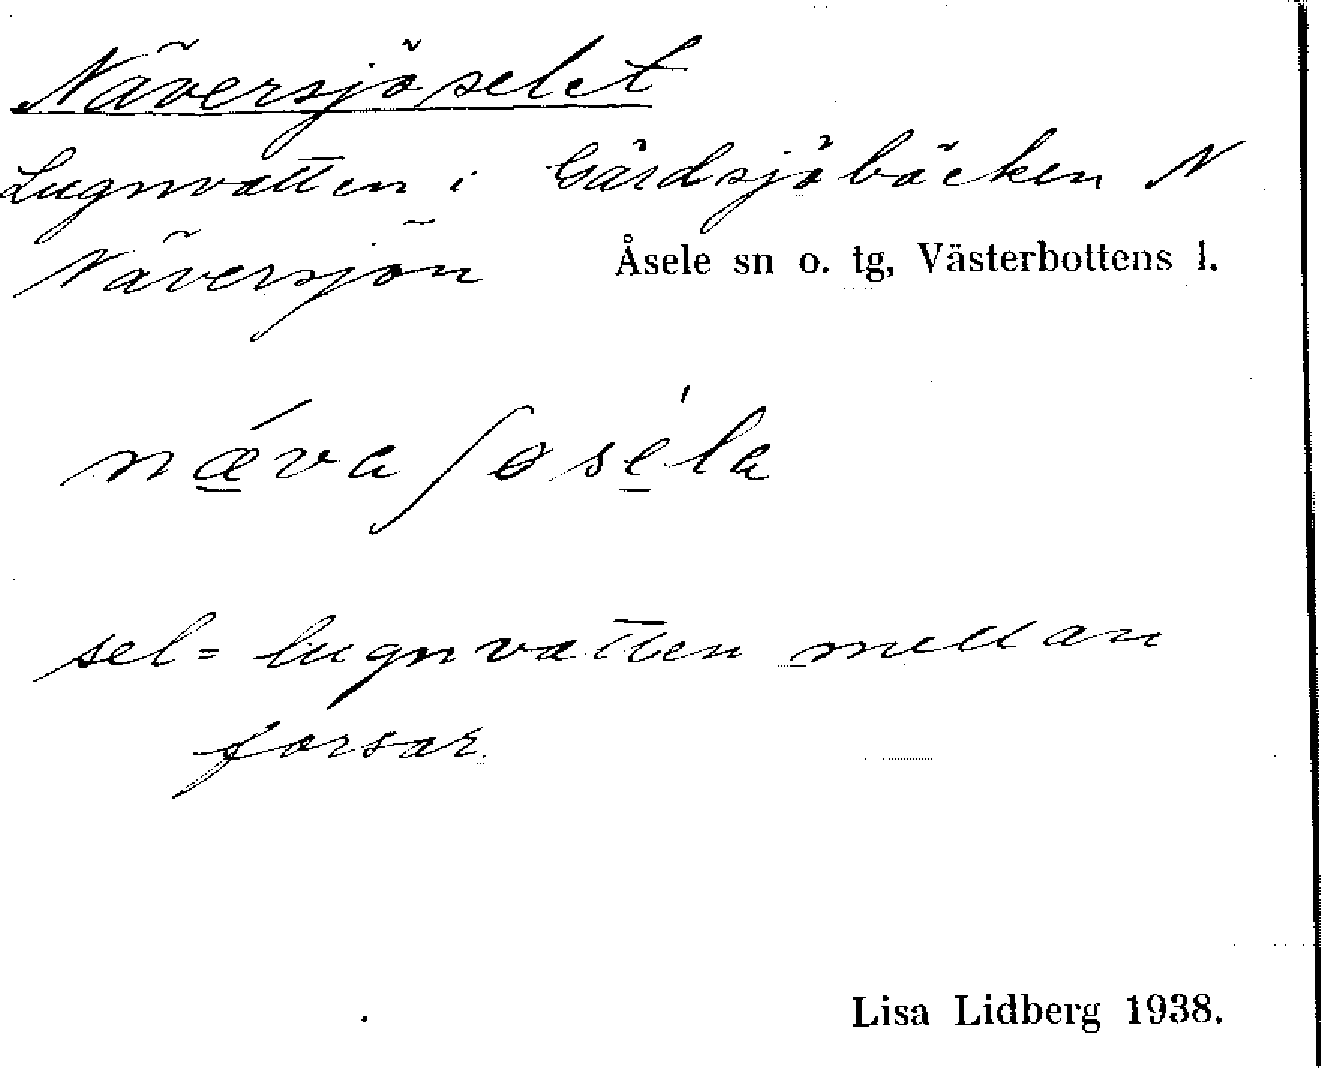 Näversjöselet
Lugnvatten i Gårdsjöbäcken N
Näversjön Åsele sn o. tg, Västerbottens l.
nǽva ʃøséla
sel = lugnvatten mellan
forsar.
Lisa Lidberg 1938.